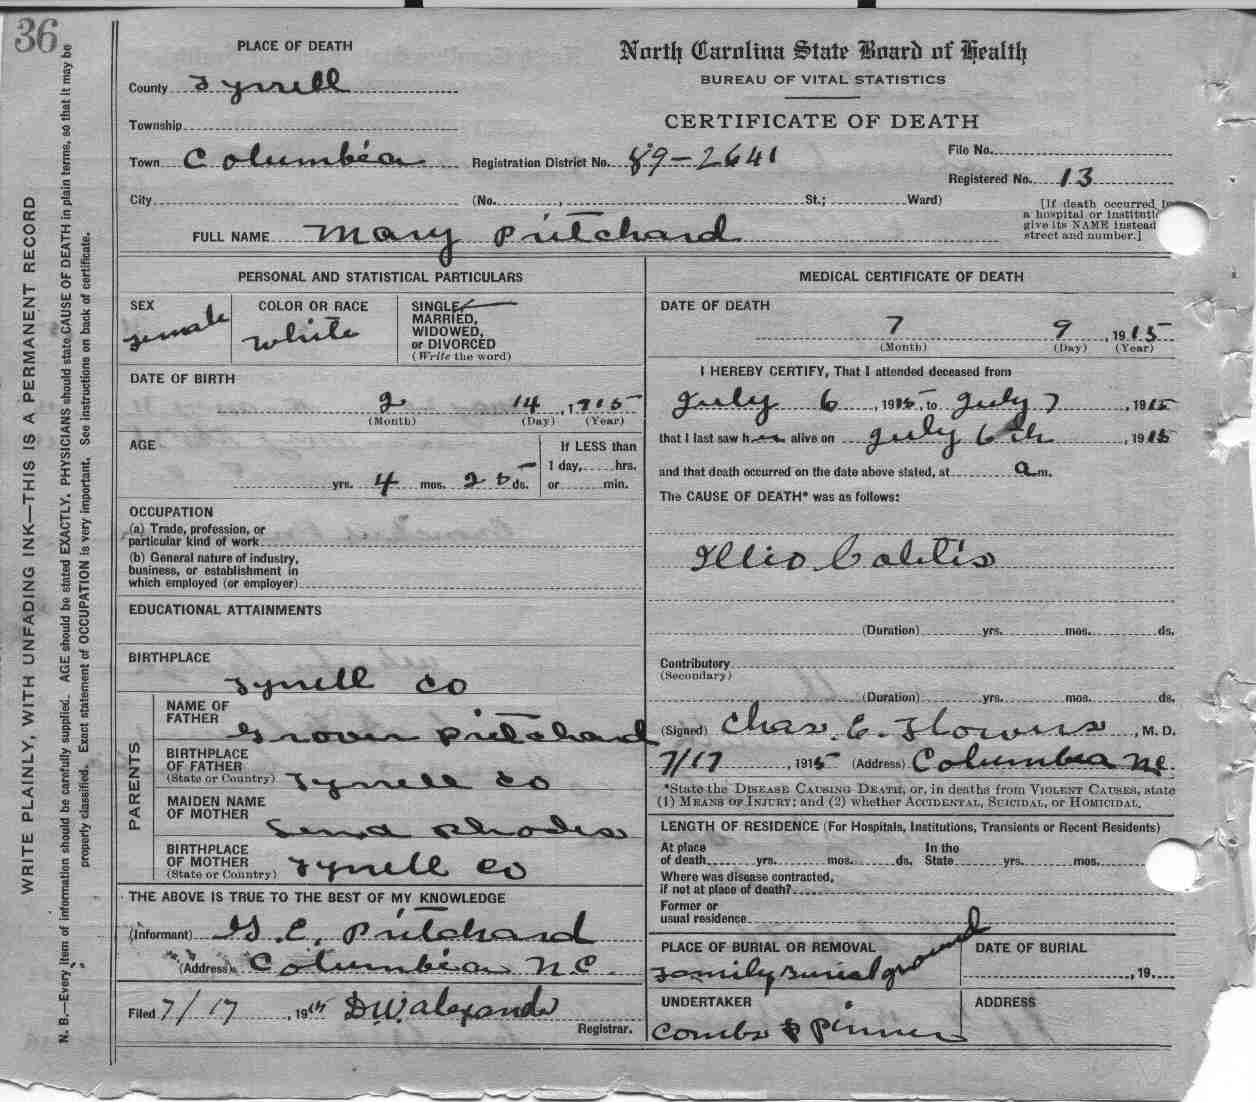 36
PLACE OF DEATH
County Tyrrell
Township
Town Columbia
City
North Carolina State Board of Health
BUREAU OF VITAL STATISTICS
CERTIFICATE OF DEATH
Registration District No. 89-2641
File No.
Registered No. 13
(No. , St.; Ward)
[If death occurred in
a hospital or instituti
give its NAME instead
street and number.]
FULL NAME Mary Pritchard
PERSONAL AND STATISTICAL PARTICULARS
SEX
female
COLOR OR RACE
White
SINGLE,
MARRIED,
WIDOWED,
or DIVORCED
(Write the word)
DATE OF BIRTH
2 14, 1915
(Month) (Day) (Year)
AGE
yrs. 4 mos. 25 ds.
If LESS than
1 day, hrs.
or min.
OCCUPATION
(a) Trade, profession, or
particular kind of work
(b) General nature of industry,
business, or establishment in
which employed (or employer)
EDUCATIONAL ATTAINMENTS
BIRTHPLACE
Tyrrell Co
PARENTS
NAME OF
FATHER
Grover Pritchard
BIRTHPLACE
OF FATHER
(State or Country) Tyrrell Co
MAIDEN NAME
OF MOTHER
Rhodes
BIRTHPLACE
OF MOTHER
(State or Country) Tyrrell Co
THE ABOVE IS TRUE TO THE BEST OF MY KNOWLEDGE
(Informant) G. C. Pritchard
(Address) Columbia N C
Filed 7/17, 1915 D W Alexander
Registrar.
MEDICAL CERTIFICATE OF DEATH
DATE OF DEATH
7 9, 1915
(Month) (Day) (Year)
I HEREBY CERTIFY, That I attended deceased from
July 6, 1915, to July 7 1915
that I last saw her alive on July 6th, 1915
and that death occurred on the date above stated, at a m.
The CAUSE OF DEATH* was as follows:
Illio Colitis
(Duration) yrs. mos. ds.
Contributory
(Secondary)
(Duration) yrs. mos. ds.
(Signed) Chas. E. Flowers, M. D.
7/17, 1915 (Address) Columbia NC.
*State the DISEASE CAUSING DEATH, or, in deaths from VIOLENT CAUSES, state
(1) MEANS OF INJURY; and (2) whether ACCIDENTAL, SUICIDAL, or HOMICIDAL.
LENGTH OF RESIDENCE (For Hospitals, Institutions, Transients or Recent Residents)
At place
of death yrs. mos. ds.
In the
State yrs. mos.
Where was disease contracted,
if not at place of death?
Former or
usual residence
PLACE OF BURIAL OR REMOVAL
Family burial ground
DATE OF BURIAL
, 19
UNDERTAKER
Combs & Pinner
ADDRESS
WRITE PLAINLY, WITH UNFADING INK—THIS IS A PERMANENT RECORD
N. B.—Every item of information should be carefully supplied. AGE should be stated EXACTLY. PHYSICIANS should state CAUSE OF DEATH in plain terms, so that it may be
properly classified. Exact statement of OCCUPATION is very important. See instructions on back of certificate.